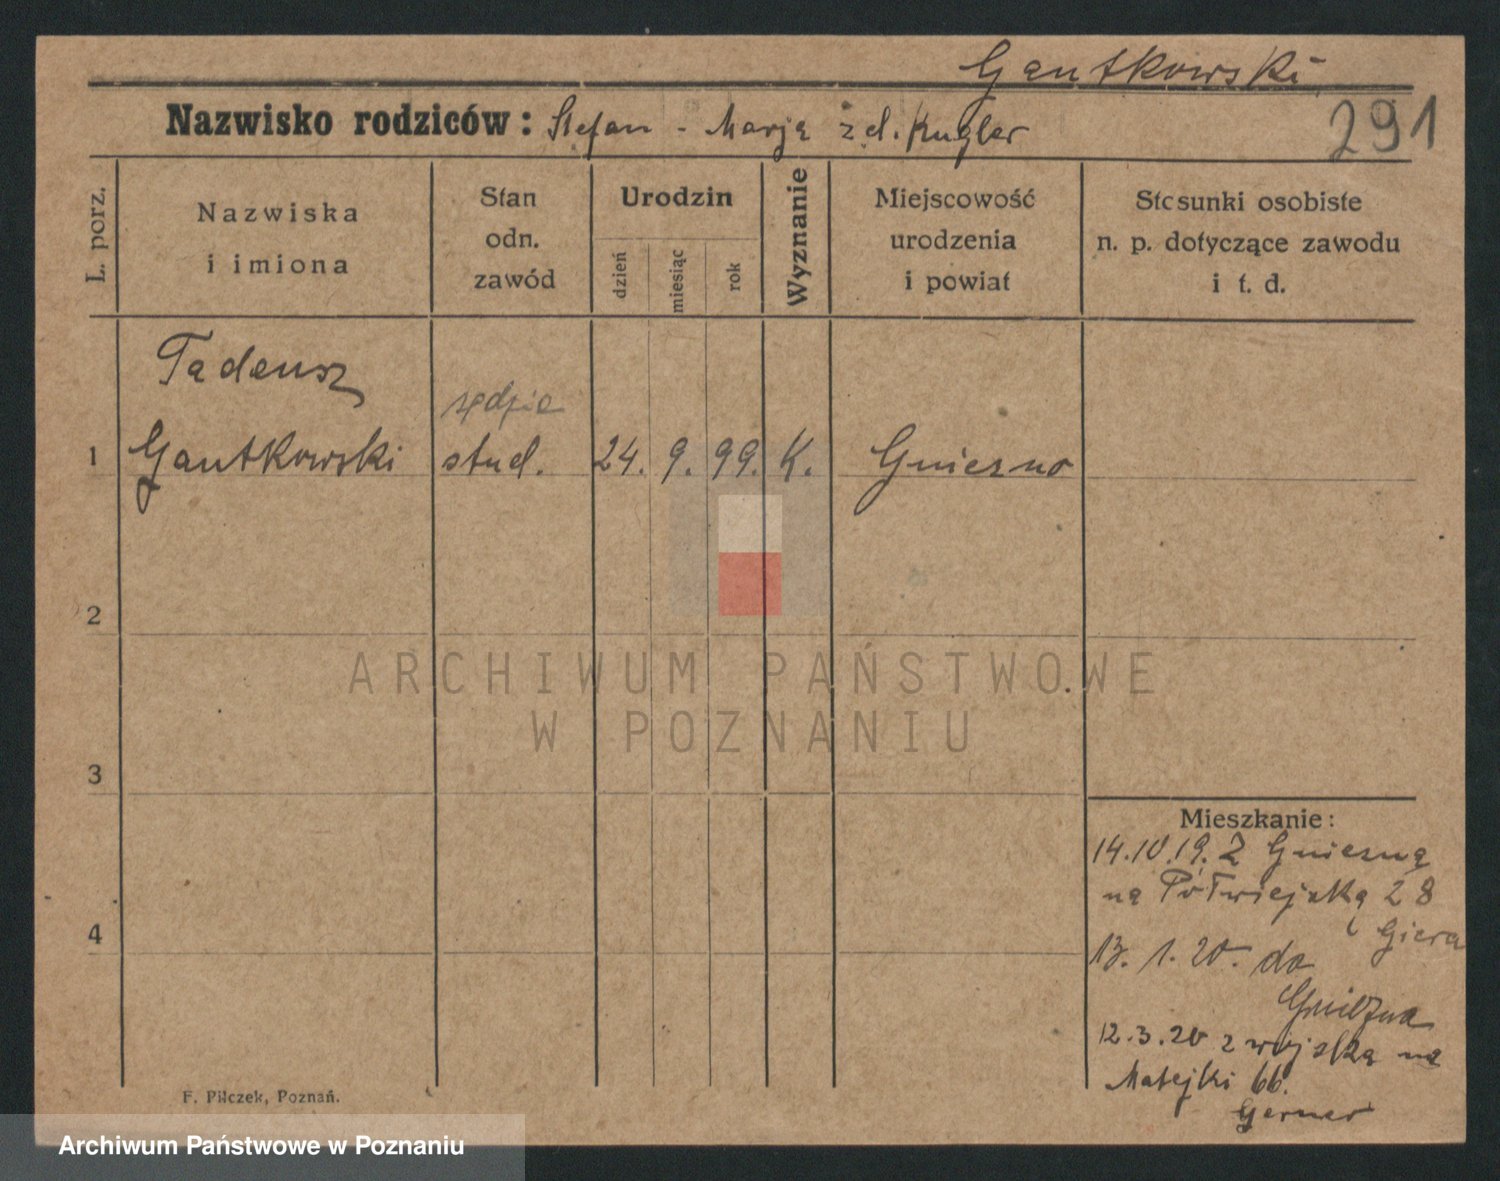 Gantkowski
291
Nazwisko rodziców: Stefan - Marja z d. Kugler
L. porz.
Nazwiska i imiona
Stan odn. zawód
Urodzin
dzień
miesiąc
rok
Wyznanie
Miejscowość urodzenia i powiat
Stosunki osobiste n. p. dotyczące zawodu i t. d.
Tadeusz
sędzia
1 Gantkowski stud. 24. 9. 99. K. Gniezno
2
ARCHIWUM PAŃSTWOWE
W POZNANIU
3
Mieszkanie:
14.10.19. Z Gniezna
na Półwiejską 28
Giera
4
13. 1. 20. do
Gniezna
12.3.20 z wojska na
Matejki 66.
Gerner
F. Pilczek, Poznań.
Archiwum Państwowe w Poznaniu